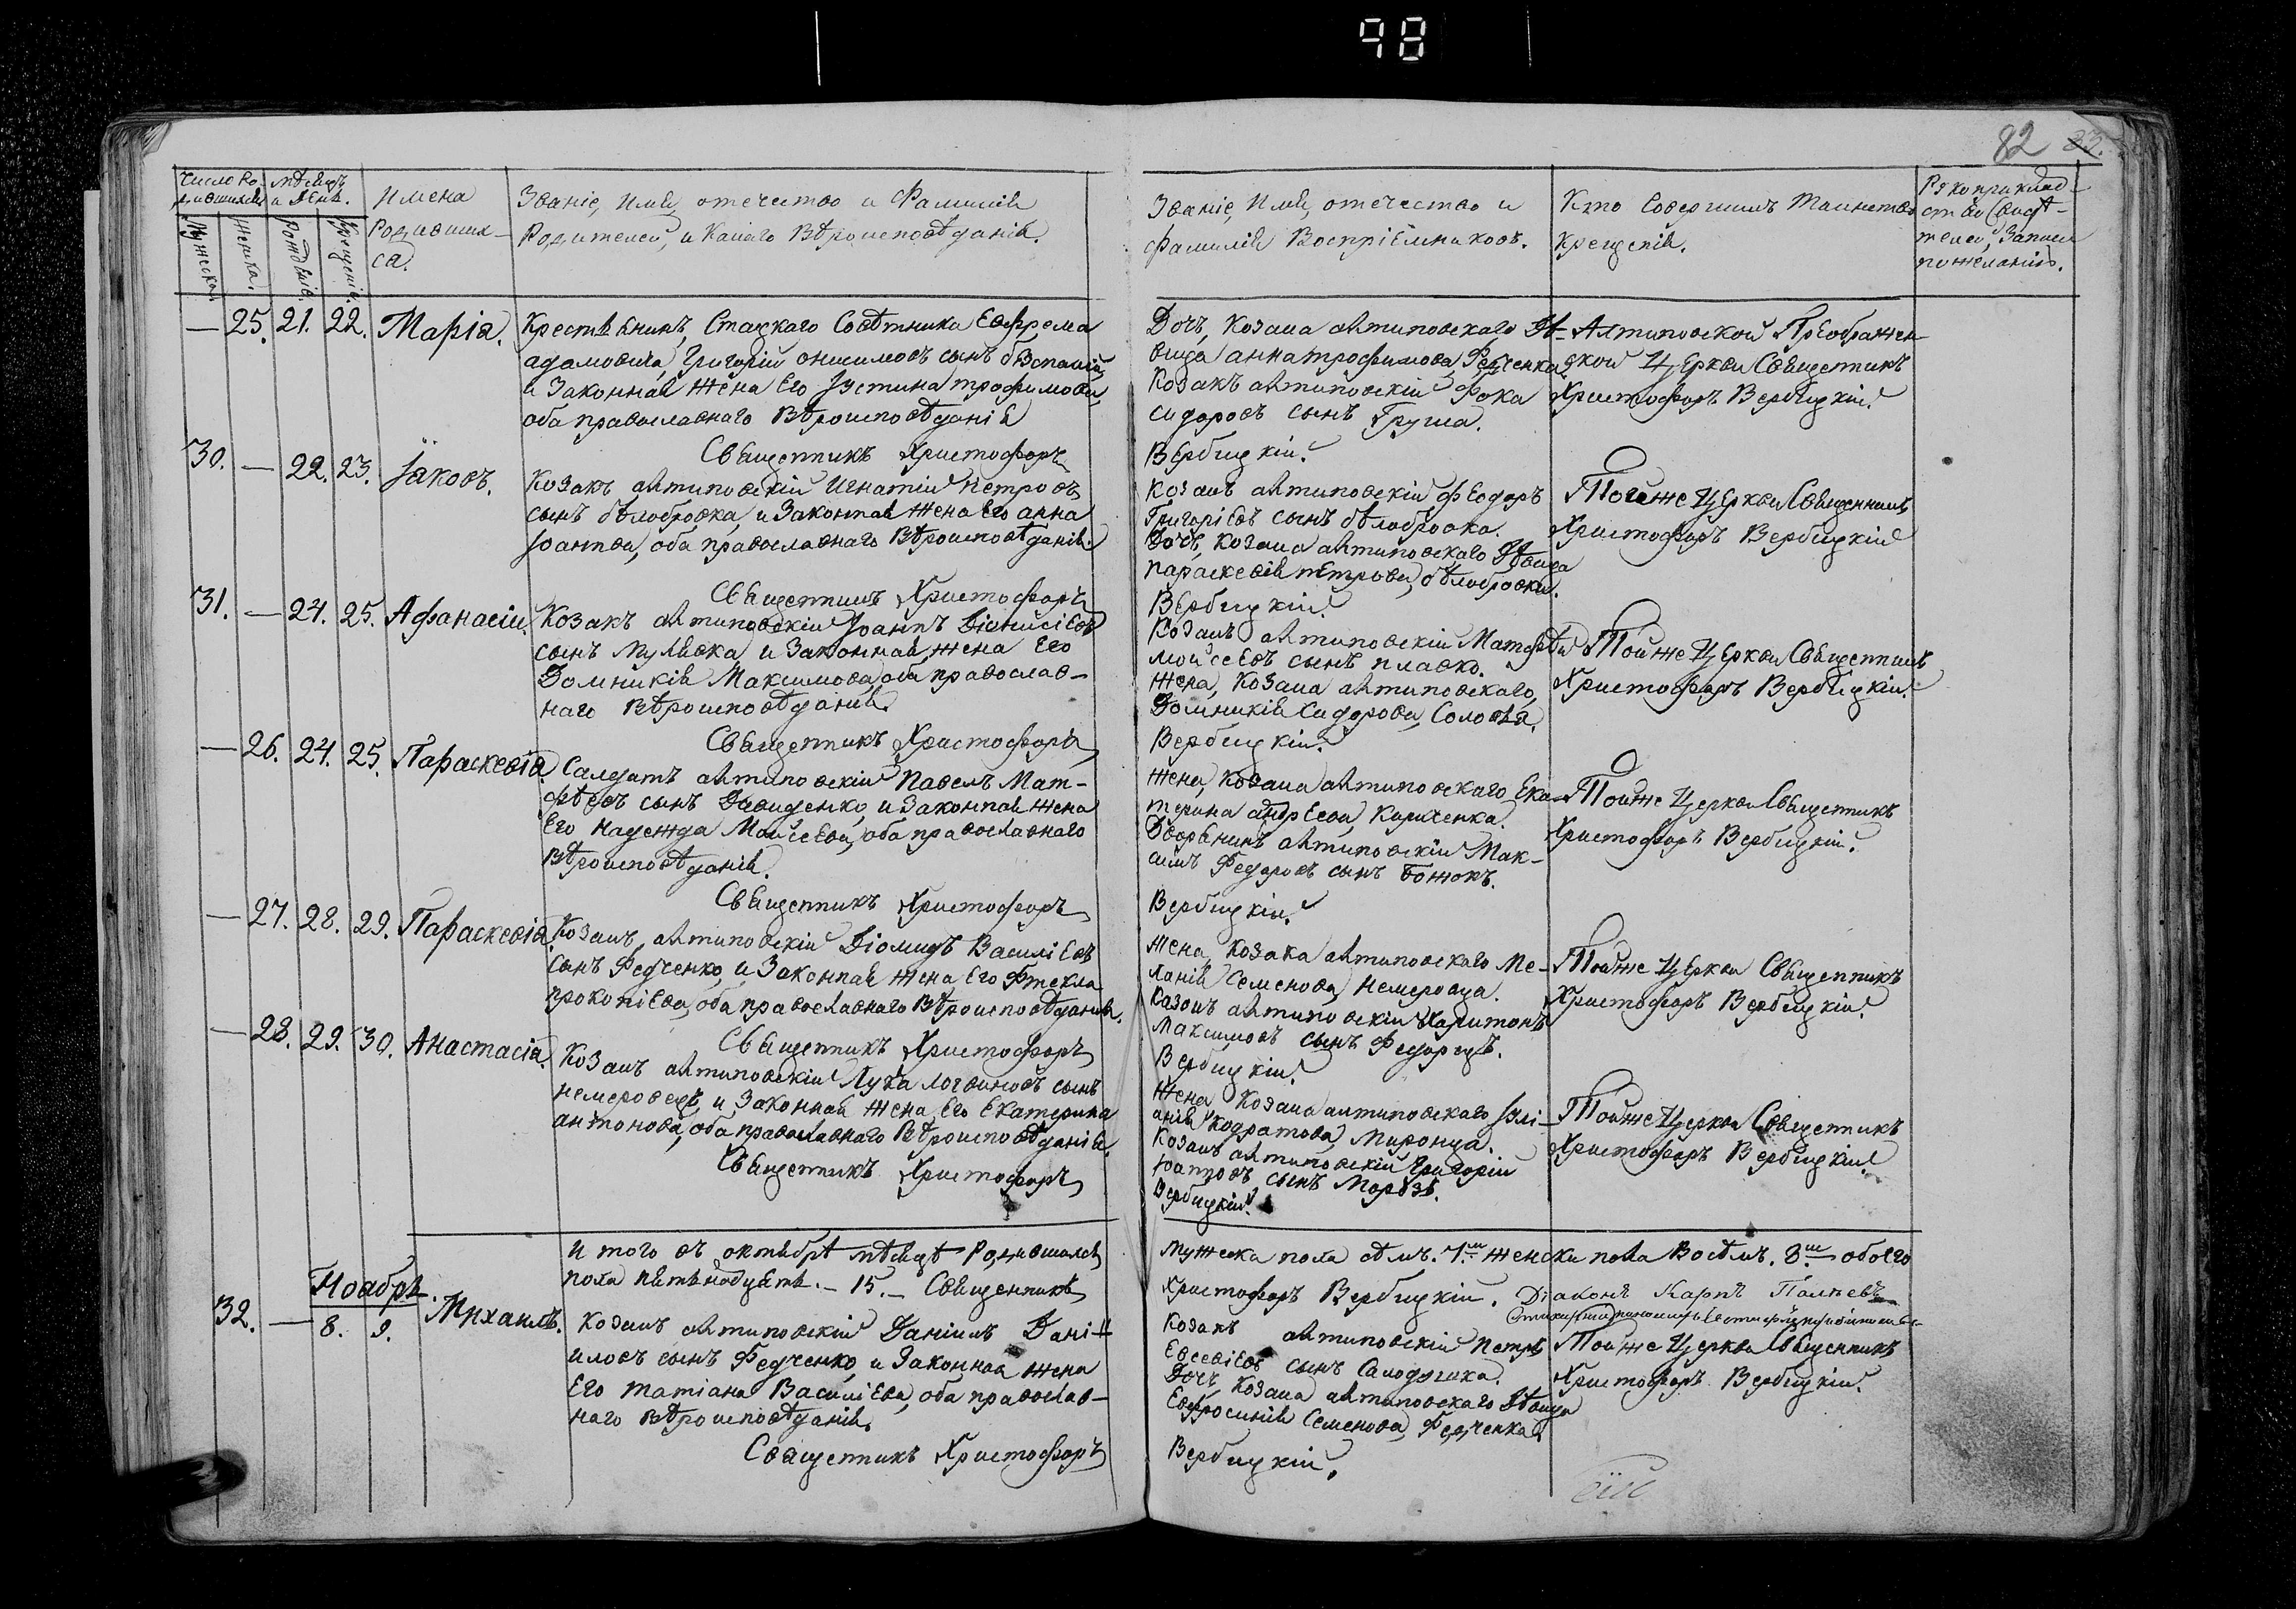 98
82 83.
Число Ро-
дившихся
Мѣсяцъ
и День.
Имена
Родивших-
ся.
Мужеска.
Женска.
Рожденіе.
Крещеніе.
Званіе, Имя, отечество и Фамилія
Родителей, и Какаго Вѣроисповѣданія.
Званіе, Имя, отечество и
Фамилія Воспріемниковъ.
Кто Совершилъ Таинство
Крещенія.
Рукоприклад-
ство Свидѣ-
телей, Записи
пожеланію.
— 25. 21. 22. Марія.
Крестянинъ, Стацкаго Совѣтника Ефрема
адамовича, Григорій онисимовъ сынъ
и Законная Жена Его Іустина трофимова,
оба православнаго Вѣроисповѣданія
Священникъ Христофоръ
Дочь, Козака антиповскаго Дѣ-
вица анна трофимова Федченка
Козакъ антиповскій Фока
сидоровъ сынъ Груша.
Вербицкій.
Антиповской Преображен-
ской Церкви Священникъ
Христофоръ Вербицкій.
30. — 22. 23. Іаковъ.
Козакъ антиповскій Игнатій петровъ
сынъ бѣлобровка, и Законная жена Его анна
Іоаннова, оба православнаго Вѣроисповѣданія.
Священникъ Христофоръ
Козакъ антиповскій Феодоръ
Григоріевъ сынъ бѣлобровка.
Дочь, козака антиповскаго Дѣвица
параскевія петрова, бѣлобровка.
Вербицкій.
Тойже Церкви Священникъ
Христофоръ Вербицкій
31. — 24. 25. Афанасій.
Козакъ антиповскій Іоаннъ Діонисіевъ
сынъ Мулявка и Законная жена Его
Домникія Максимова, оба православ-
наго Вѣроисповѣданія.
Священникъ Христофоръ
Козакъ антиповскій Матфей
мойсеевъ сынъ плавко.
Жена, Козака антиповскаго,
Домникія Сидорова, Соловья.
Вербицкій.
Тойже Церкви Священникъ
Христофоръ Вербицкій.
— 26. 24. 25. Параскевія.
Салдатъ антиповскій Павелъ Мат-
фѣевъ сынъ Давиденко, и Законная жена
Его Надежда Мойсеева, оба православнаго
Вѣроисповѣданія.
Священникъ Христофоръ
Жена, Козака антиповскаго Ека-
терина андреева, Кириченка.
Дворянинъ антиповскій Мак-
симъ Федоровъ сынъ Божокъ.
Вербицкій.
Тойже Церкви Священникъ
Христофоръ Вербицкій.
— 27. 28. 29. Параскевія.
Козакъ антиповскій Діомидъ Василіевъ
сынъ Федченко, и Законная жена Его Фтекла
прокопіева, оба православнаго Вѣроисповѣданія.
Священникъ Христофоръ
Жена Козака антиповскаго Ме-
ланія Семенова, Немеровца.
Казакъ антиповскій Харитонъ
Максимовъ сынъ Федорецъ.
Вербицкій.
Тойже Церкви Священникъ
Христофоръ Вербицкій.
— 28. 29. 30. Анастасія.
Козакъ антиповскій Лука логвиновъ сынъ
немеровецъ, и Законная Жена Его Екатерина
антонова, оба православнаго Вѣроисповѣданія.
Священникъ Христофоръ
Жена Козака антиповскаго Іулі-
анія Кодратова, Миронца.
Козакъ антиповскій Григорій
Іоанновъ сынъ Морозъ.
Вербицкій.
Тойже Церкви Священникъ
Христофоръ Вербицкій.
Итого въ октябрѣ мѣсяцѣ Родившихся
Мужеска пола семъ. 7. женска пола Восемъ. 8. обоего
пола пятьнадцать. — 15. — Священникъ
Христофоръ Вербицкій. Діаконъ Карпъ
Ноябрь.
32. — 8. 9. Михаилъ.
Козакъ антиповскій Даніилъ Дані-
иловъ сынъ Федченко, и Законная жена
Его татіана Василіева, оба православ-
наго вѣроисповѣданія.
Священникъ Христофоръ
Козакъ антиповскій Петръ
Евсевіевъ сынъ
Дочь Козака антиповскаго Дѣвица
Евфросинія Семенова, Федченка.
Вербицкій.
Тойже Церкви Священникъ
Христофоръ Вербицкій.